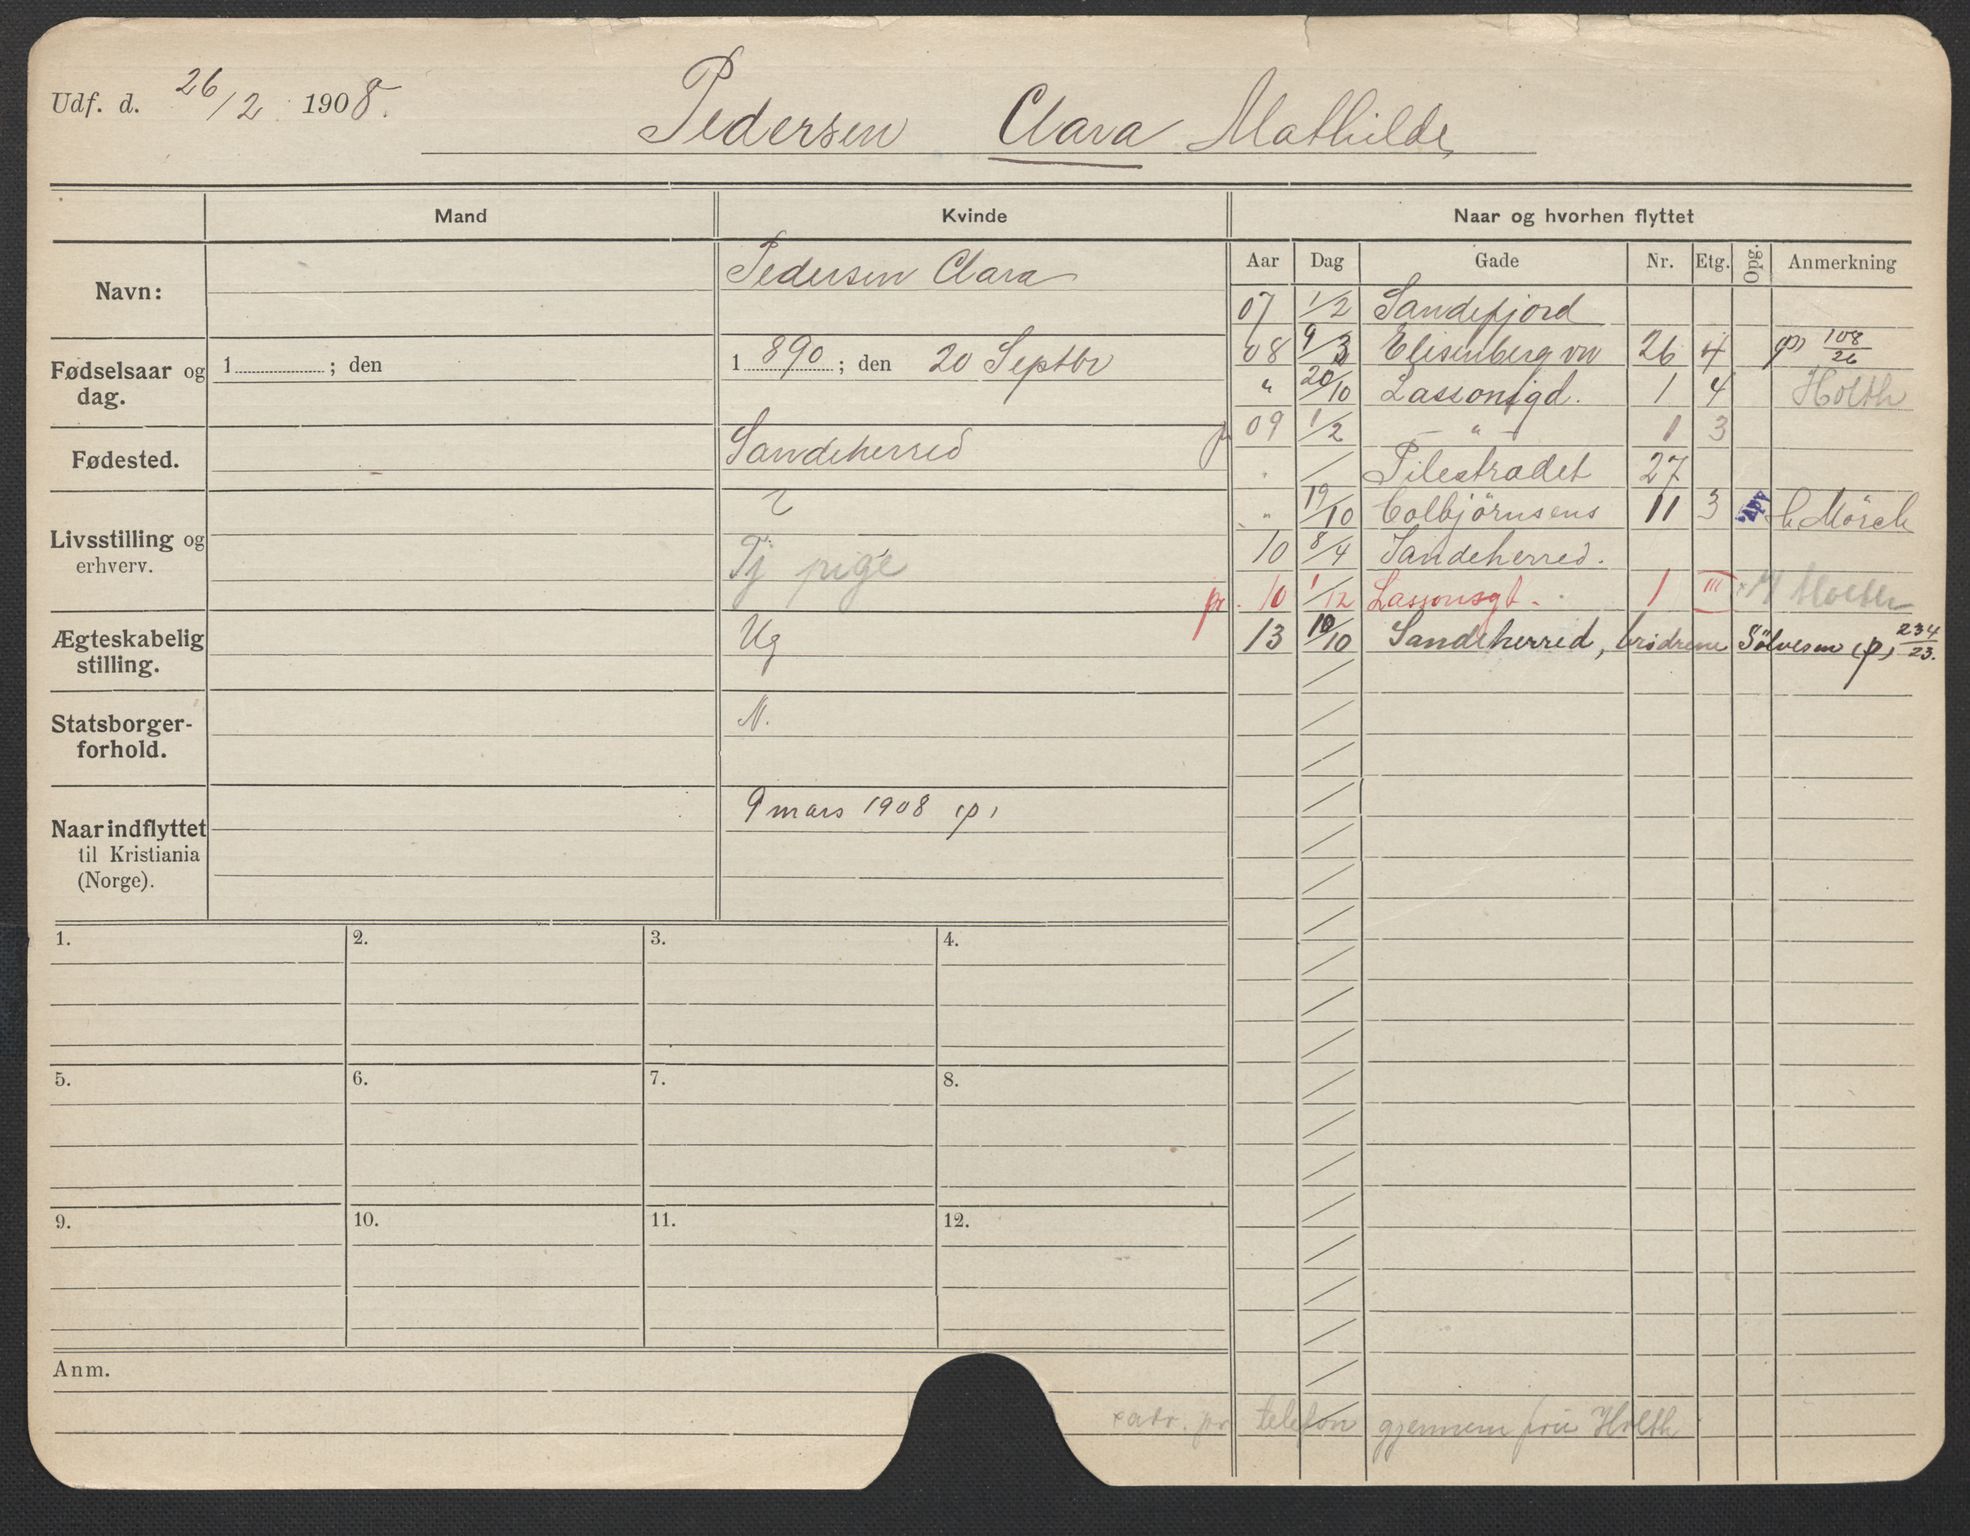 Udf. d. 26/2 1908.
Pedersen Clara Mathilde
Mand
Kvinde
Naar og hvorhen flyttet
Navn:
Pedersen Clara
Aar Dag Gade Nr. Etg. Opg. Anmerkning
07 1/2 Sandefjord
08 9/3 Elisenberg vn 26 4 (p) 108/26
" 20/10 Lassonsgd. 1 4 Holth
09 1/2 — " — 1 3
" / Pilestrædet 27
" 19/10 Colbjørnsens 11 3 Apv h. Mörch
10 8/4 Sandeherred.
pr. 10 1/12 Lassonsgt. 1 III Holth
13 10/10 Sandeherred, brødrene Sölvesen (p) 234/23.
Fødselsaar og dag.
1 ; den
1 890 ; den 20 Septbr
Fødested.
Sandeherred
Livsstilling og erhverv.
Tj pige
Ægteskabelig stilling.
Ug
Statsborger-
forhold.
N.
Naar indflyttet
til Kristiania
(Norge).
9 mars 1908 (p)
1. 2. 3. 4.
5. 6. 7. 8.
9. 10. 11. 12.
Anm.
x adr. pr telefon gjennem fru Holth